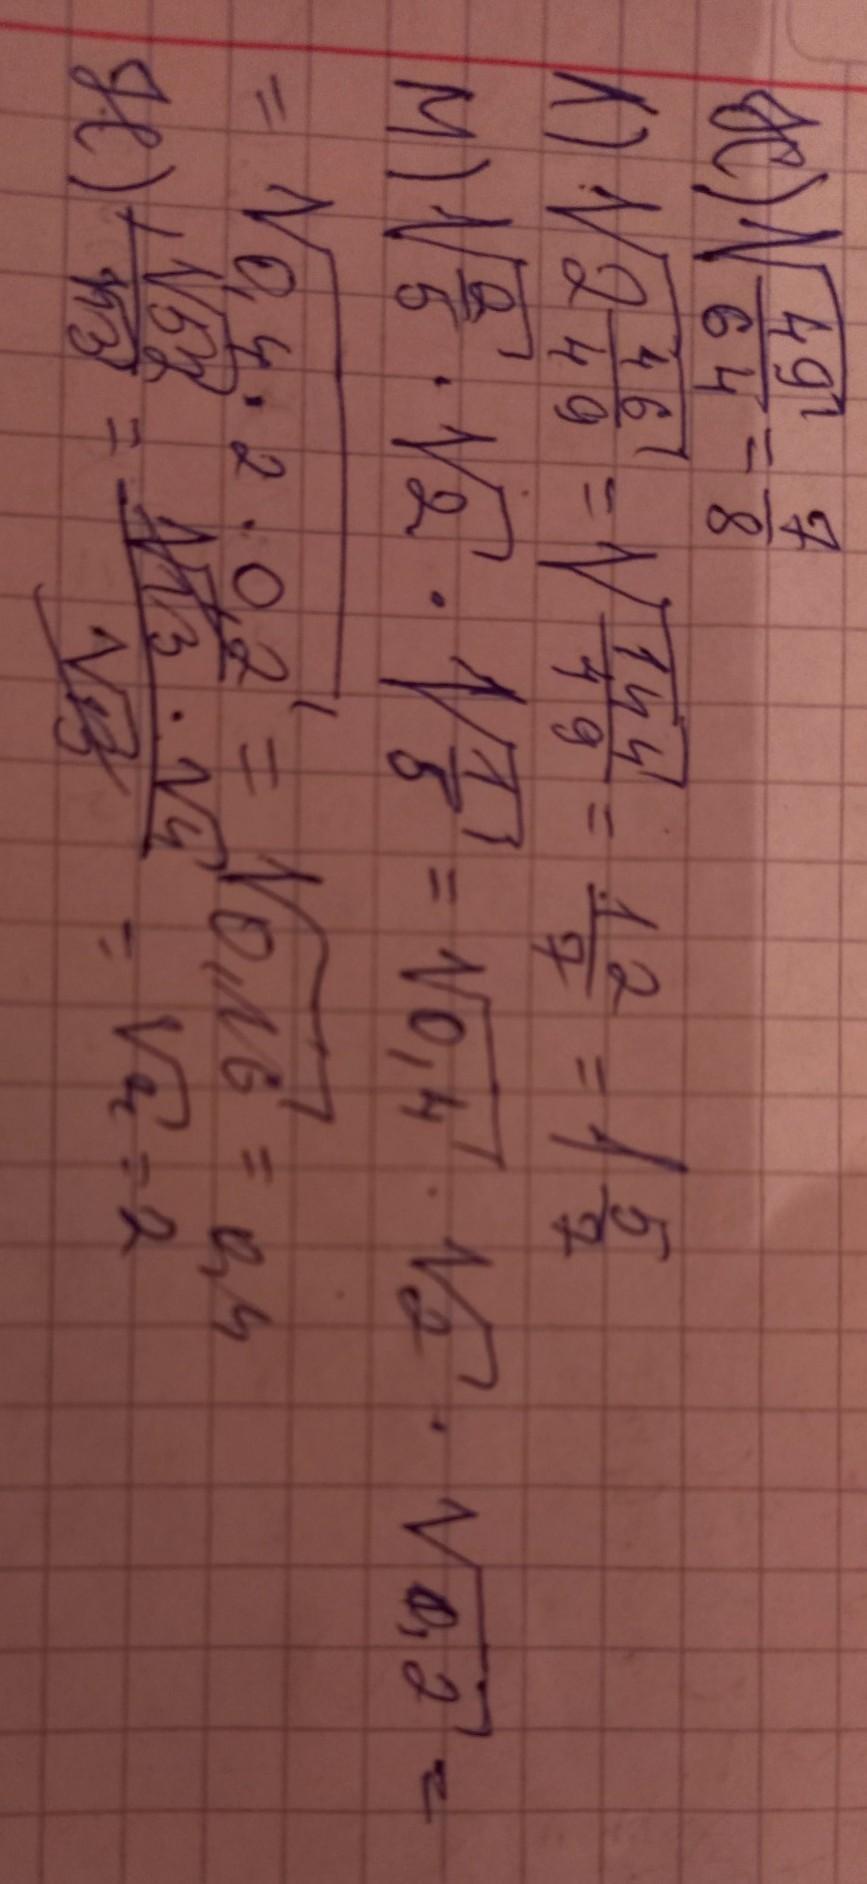 ж) √(49/64) = 7/8
л) √(2 46/49) = √(144/49) = 12/7 = 1 5/7
м) √(2/5) · √2 · √(1/5) = √0,4 · √2 · √0,2 =
= √(0,4 · 2 · 0,2) = √0,16 = 0,4
ж) √52/√13 = (√13 · √4)/√13 = √4 = 2